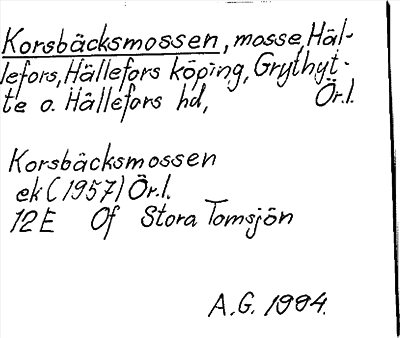 Korsbäcksmossen, mosse, Häl-
lefors, Hällefors köping, Grythyt-
te o. Hällefors hd, Ör.l.
Korsbäcksmossen
ek (1957) Ör.l.
12E Of Stora Tomsjön
A.G. 1994.